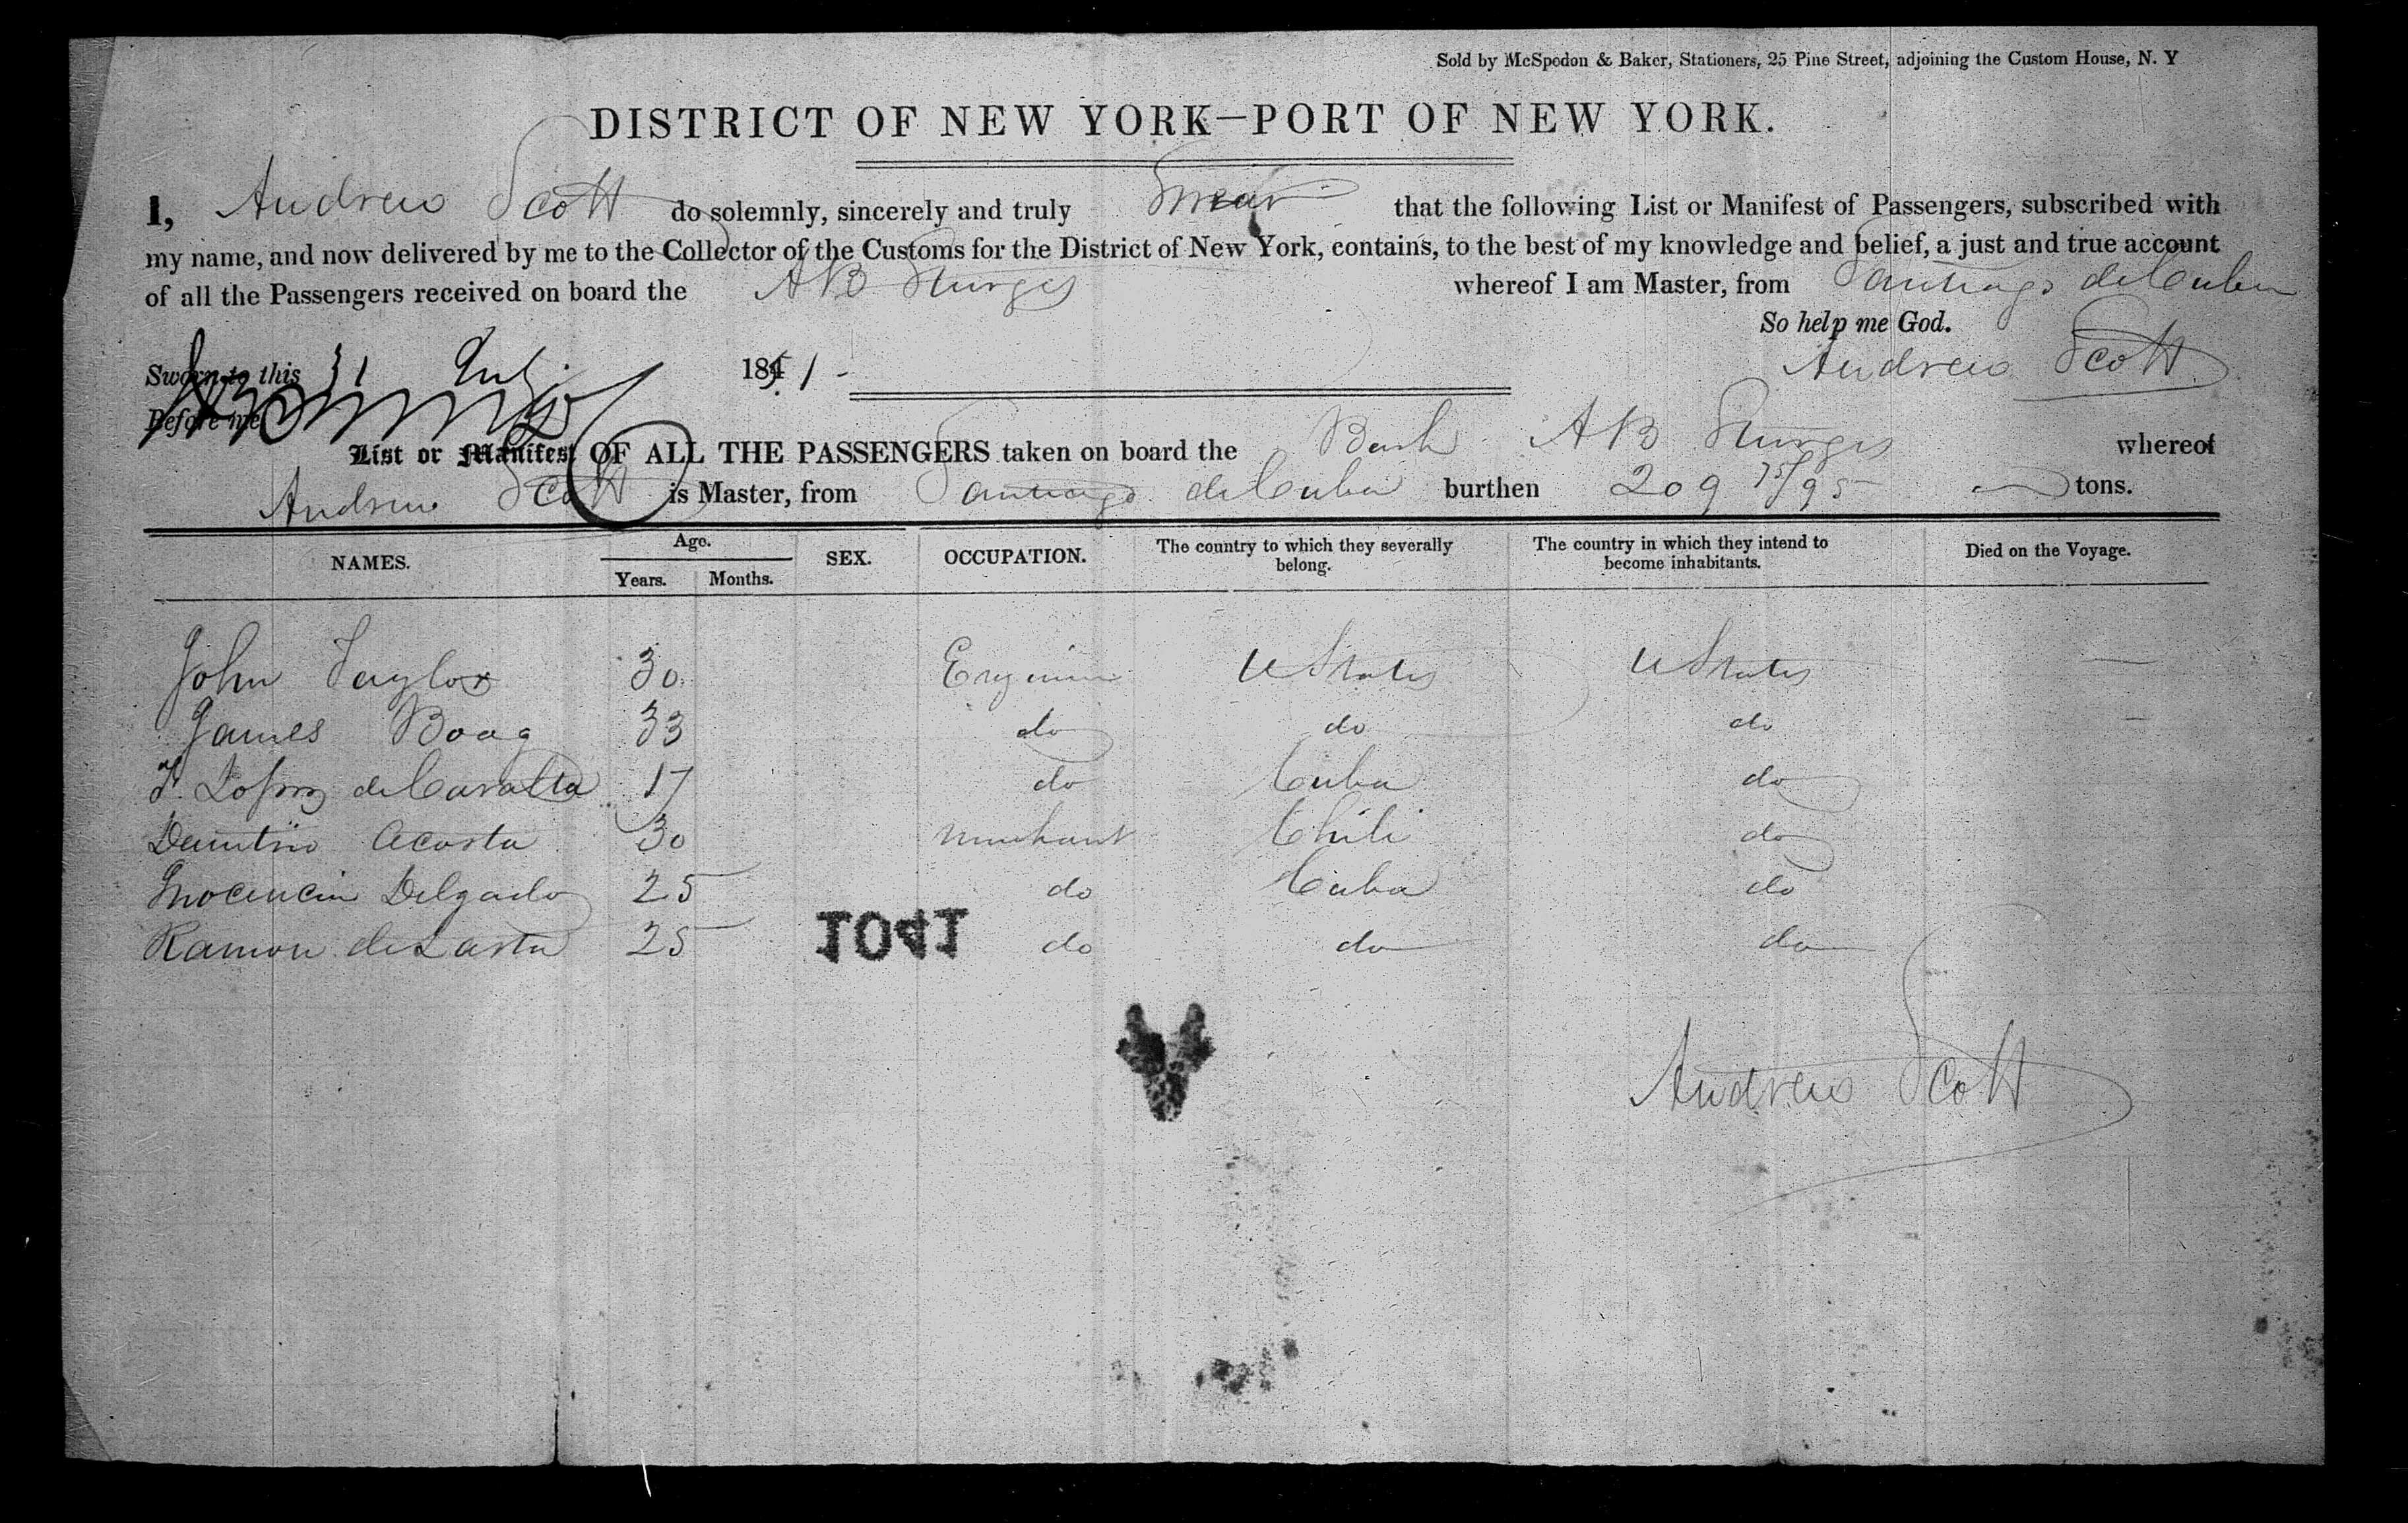 Sold by McSpedon & Baker, Stationers, 25 Pine Street, adjoining the Custom House, N. Y
DISTRICT OF NEW YORK—PORT OF NEW YORK.
I, Andrew Scott do solemnly, sincerely and truly Swear that the following List or Manifest of Passengers, subscribed with
my name, and now delivered by me to the Collector of the Customs for the District of New York, contains, to the best of my knowledge and belief, a just and true account
of all the Passengers received on board the AB Sturges whereof I am Master, from Santiago de Cuba
So help me God.
Sworn to this 31 July 1851 Andrew Scott
Before me
List or Manifest OF ALL THE PASSENGERS taken on board the Bark AB Sturges whereof
Andrew Scott is Master, from Santiago de Cuba burthen 209 75/95 tons.
NAMES. Age. Years. Months. SEX. OCCUPATION. The country to which they severally belong. The country in which they intend to become inhabitants. Died on the Voyage.
John Taylor 30 Engineer U States U States —
James Boag 33 do do do —
F. Lopez de 17 do Cuba do
Demetrio Acosta 30 merchant Chili do
Inocencio Delgado 25 do Cuba do
Ramon de Lastra 25 do do do
1041
Andrew Scott